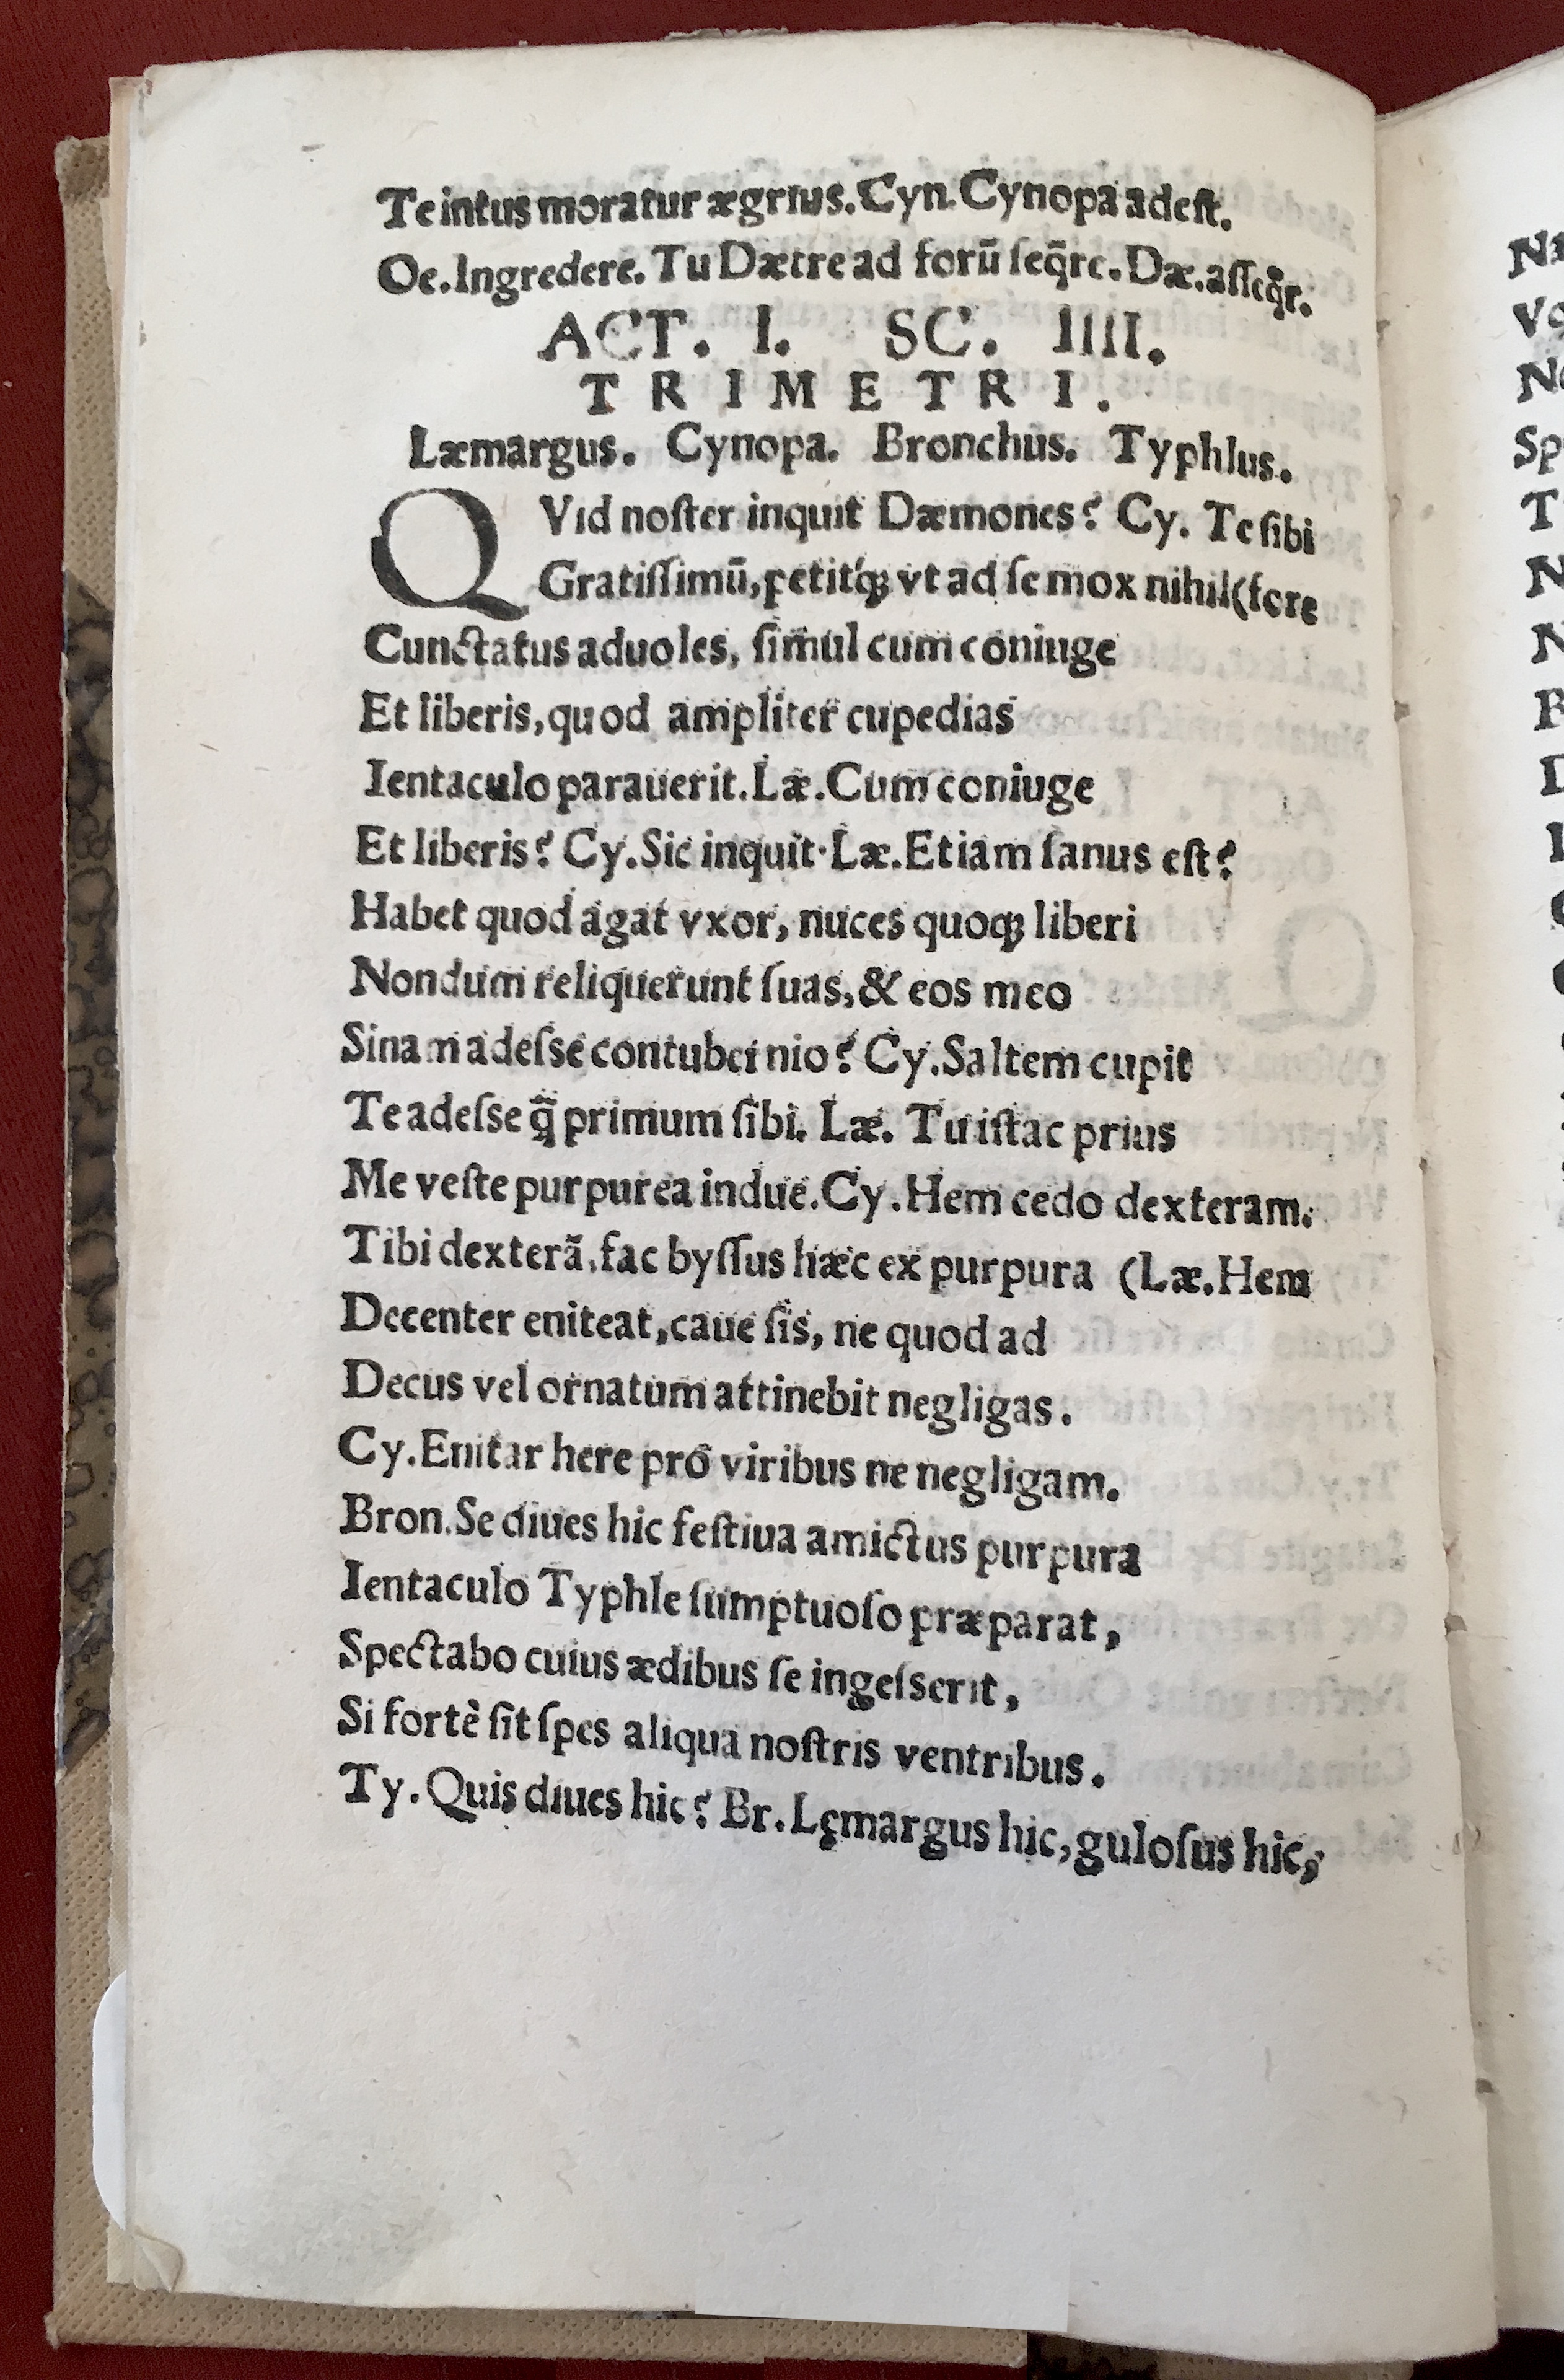 Te intus moratur ægrius. Cyn. Cynopa adeſt.
Oe. Ingredere. Tu Dætre ad forū ſeq̄re. Dæ. aſſeq̊r.
ACT. I. SC. IIII.
TRIMETRI.
Læmargus. Cynopa. Bronchus. Typhlus.
QVid noſter inquit Dæmones? Cy. Te ſibi
Gratiſſimū, petitq́ꝫ vt ad ſe mox nihil (fore
Cunctatus aduoles, ſimul cum coniuge
Et liberis, quod ampliter cupedias
Ientaculo parauerit. Læ. Cum coniuge
Et liberis? Cy. Sic inquit· Læ. Etiam ſanus eſt?
Habet quod agat vxor, nuces quoqꝫ liberi
Nondum reliquerunt ſuas, & eos meo
Sinam adeſse contubernio? Cy. Saltem cupit
Te adeſse q̄ primum ſibi. Læ. Tu iſtac prius
Me veſte purpurea indue. Cy. Hem cedo dexteram.
Tibi dexterā, fac byſſus hæc ex purpura (Læ. Hem
Decenter eniteat, caue ſis, ne quod ad
Decus vel ornatum attinebit negligas.
Cy. Enitar here pro viribus ne negligam.
Bron. Se diues hic feſtiua amictus purpura
Ientaculo Typhle ſumptuoſo præparat,
Spectabo cuius ædibus ſe ingeſserit,
Si fortè ſit ſpes aliqua noſtris ventribus.
Ty. Quis diues hic? Br. Lęmargus hic, guloſus hic,